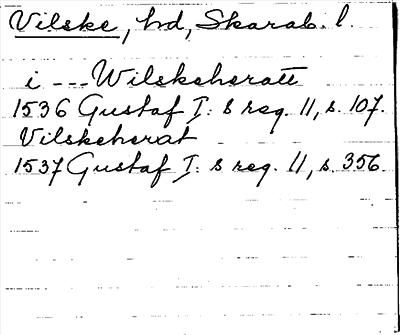 Vilske, hd, Skarab. l.
i --- Wilskeheratt
1536 Gustaf I: s reg. 11, s. 107.
Vilskeherat
1537 Gustaf I: s reg. 11, s. 356.